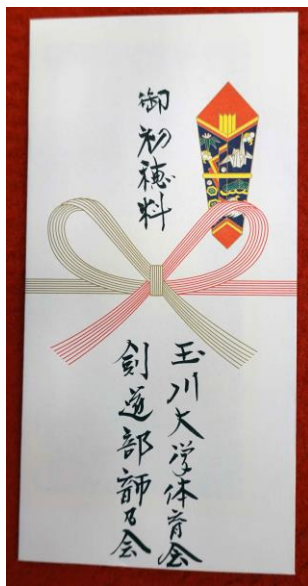 御初穂料
玉川大学体育会
剣道部韴乃会